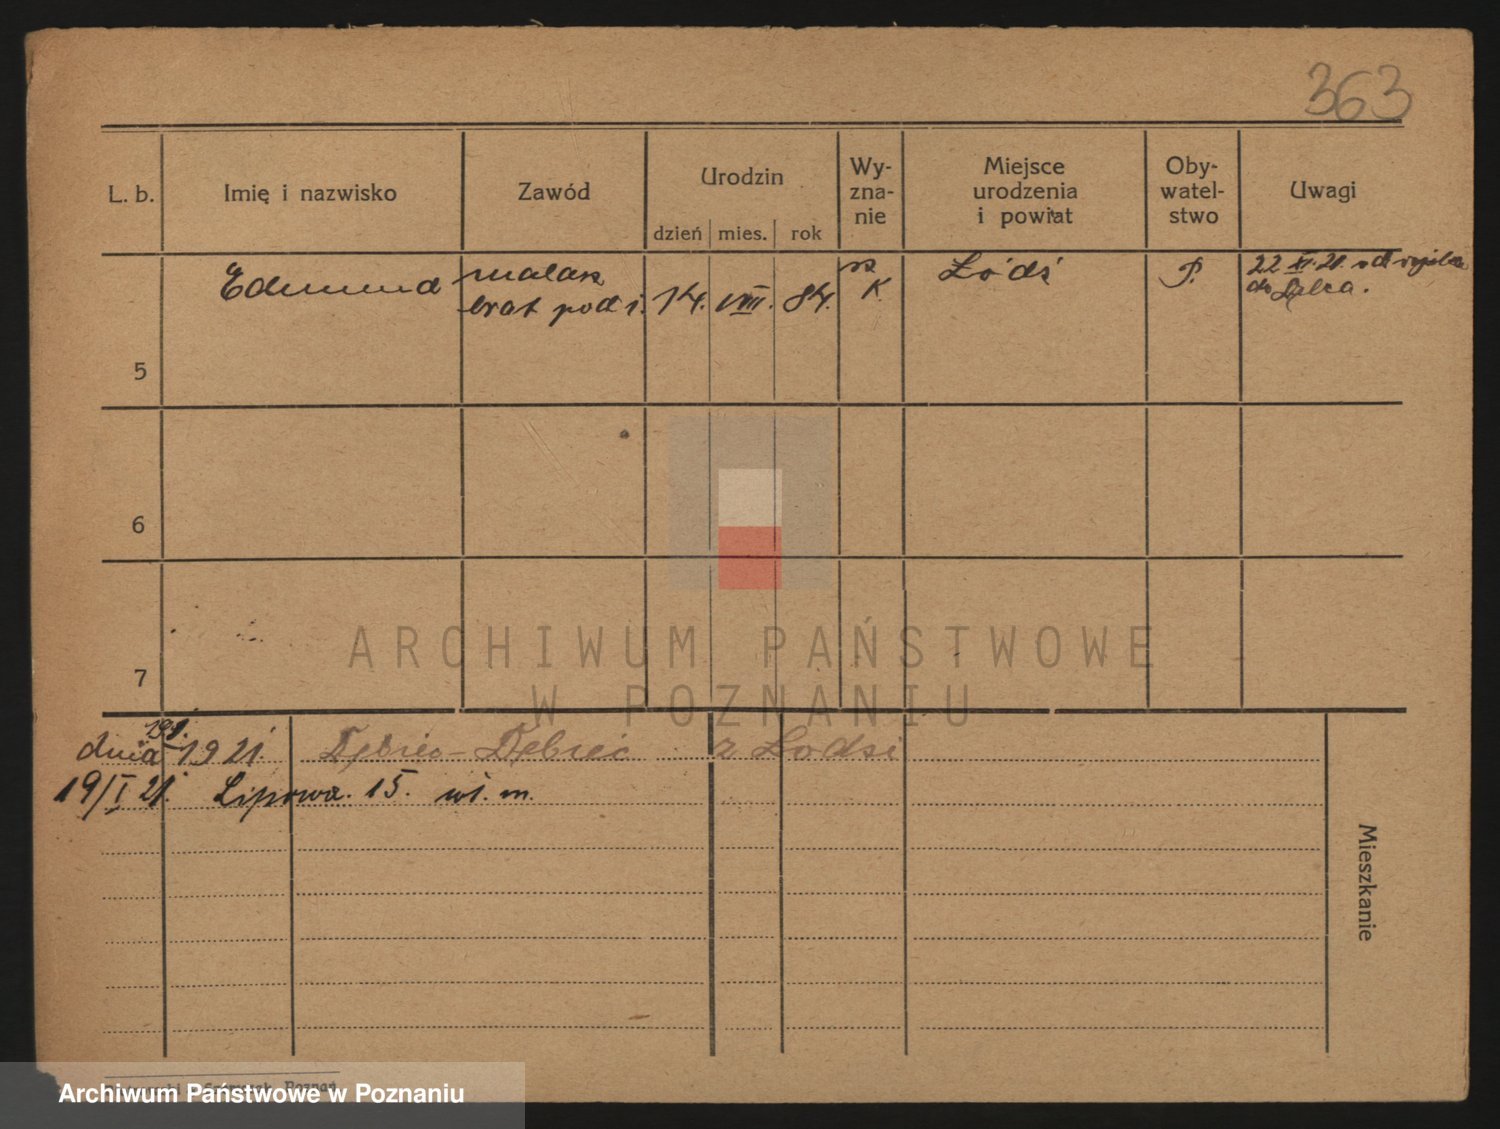 363
L. b. Imię i nazwisko Zawód Urodzin Wy- Miejsce Oby- Uwagi
zna- urodzenia watel-
nie i powiat stwo
dzień mies. rok
Edmund malarz 14. VIII. 84. rz Łódź P. 22 XI. 21. odt
brat pod 1. K do
5
6
7
dnia 19/I. 1921. Dębiec - Dębieć z Łodzi
19/I 21. Lipowa. 15. wł. m.
Mieszkanie
ARCHIWUM PAŃSTWOWE
W POZNANIU
Poznań
Archiwum Państwowe w Poznaniu